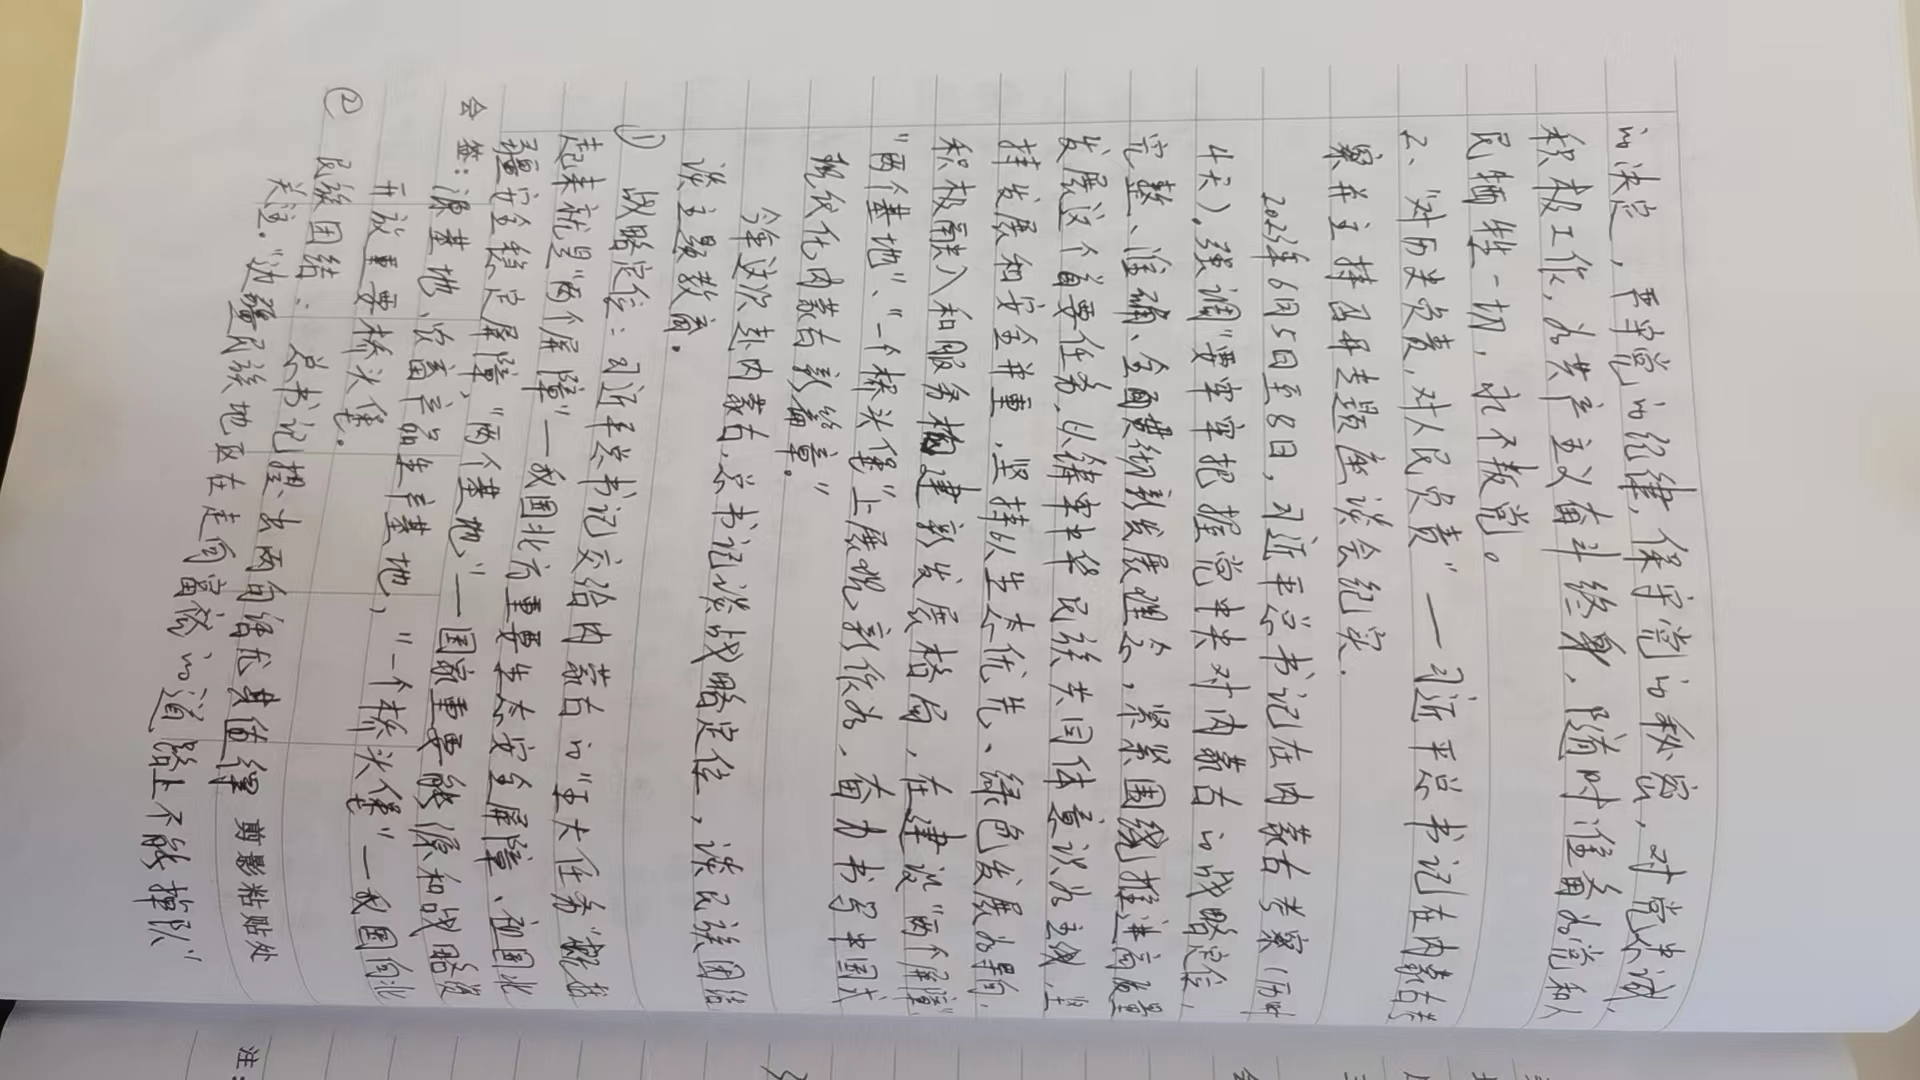 的决定，严守党的纪律，保守党的秘密，对党忠诚，
积极工作，为共产主义奋斗终身，随时准备为党和人
民牺牲一切，永不叛党。
2、"对历史负责，对人民负责"——习近平总书记在内蒙古考
察并主持召开专题座谈会纪实.
2023年6月5日至8日，习近平总书记在内蒙古考察（历时
4天），强调"要牢牢把握党中央对内蒙古的战略定位，
完整、准确、全面贯彻新发展理念，紧紧围绕推进高质量
发展这个首要任务，以铸牢中华民族共同体意识为主线，坚
持发展和安全并重，坚持以生态优先、绿色发展为导向，
积极融入和服务构建新发展格局，在建设"两个屏障"
"两个基地"、"一个桥头堡"上展现新作为，奋力书写中国式
现代化内蒙古新篇章。"
今年这次赴内蒙古，总书记谈战略定位，谈民族团结
谈主题教育.
① 战略定位：习近平总书记交给内蒙古的"五大任务"概括
起来就是"两个屏障"—我国北方重要生态安全屏障、祖国北
疆安全稳定屏障，"两个基地"—国家重要能源和战略资
源基地、农畜产品生产基地，"一个桥头堡"—我国向北
开放重要桥头堡。
② 民族团结：总书记提出两句话尤其值得
关注."边疆民族地区在走向富裕的道路上不能掉队"
会签：
剪影粘贴处
注：